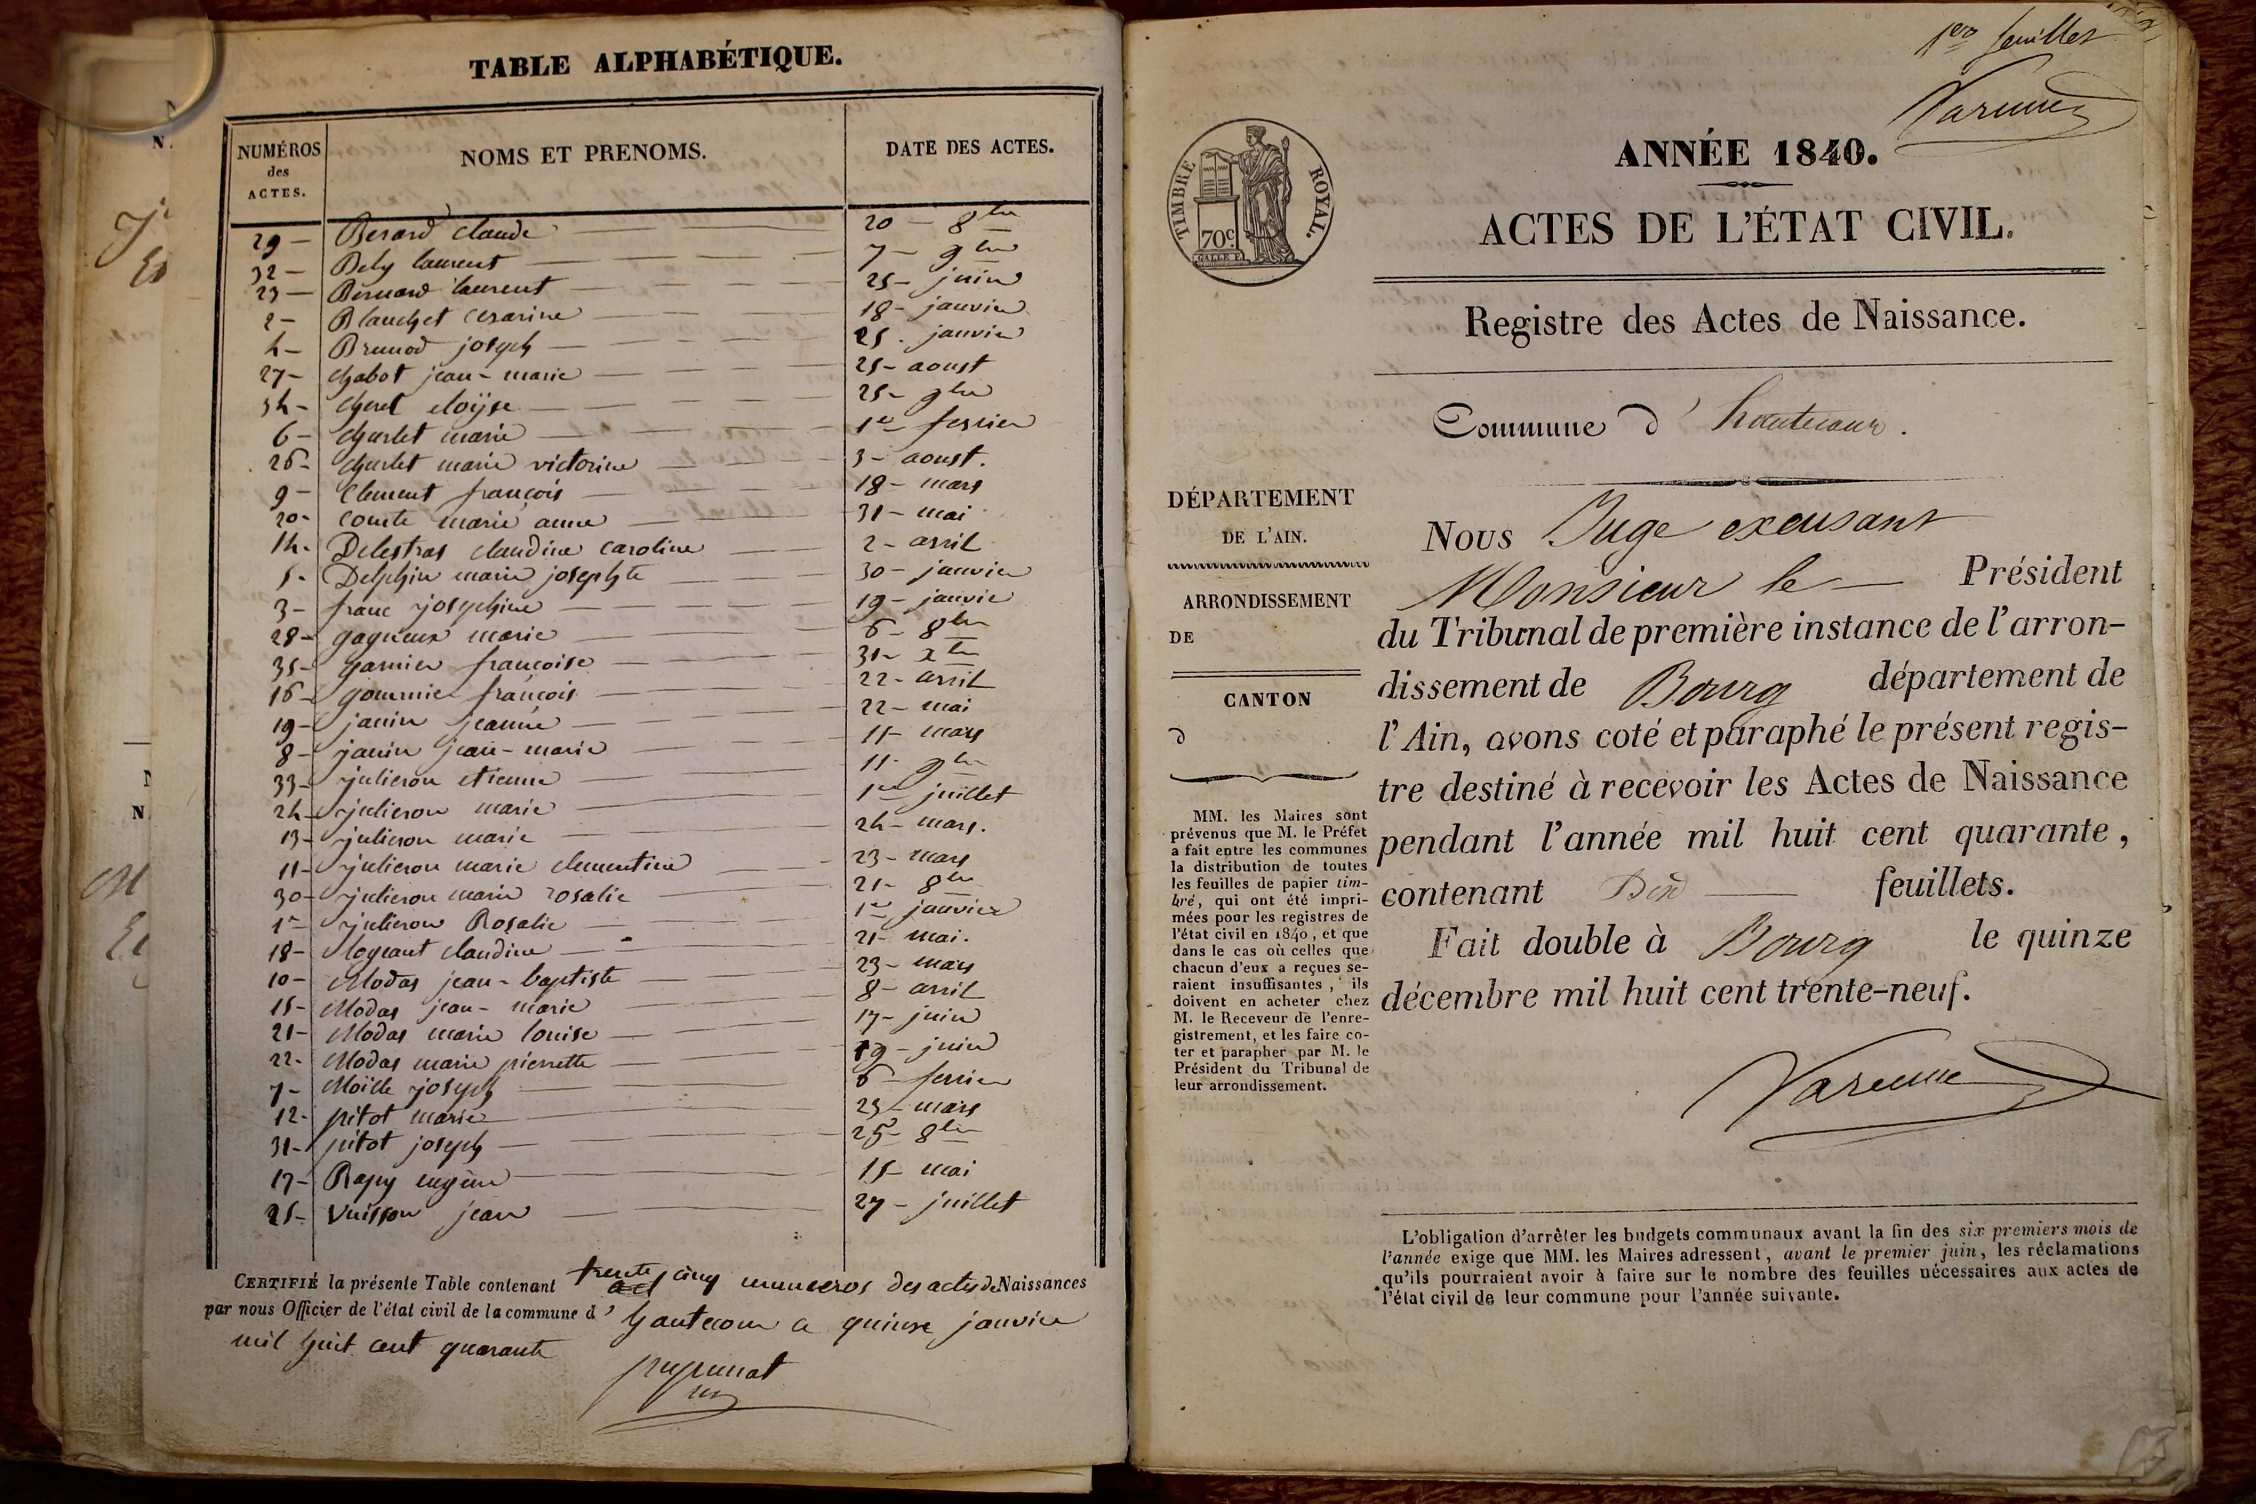 TABLE ALPHABÉTIQUE.
NUMÉROS
des
ACTES.
NOMS ET PRENOMS.
DATE DES ACTES.
29 — Berard claude 20 — 8bre
32 — Bely laurent 7 — 9bre
23 — Bernard laurent 25 — juin
2 — Blanchet cesarine 18 — janvier
4 — Brunod joseph 25 . janvier
27 — chabot jean - marie 25 — aoust
34 — cheret eloÿse 25 — 9bre
6 — charlet marie 1er fevrier
26 — charlet marie victorine 3 — aoust.
9 — Clement françois 18 — mars
20 - comte marie anne 31 — mai
14 - Delestras claudine caroline 2 — avril
5 - Delphin marie josephte 30 — janvier
3 — franc josephine 19 — janvier
28 — gagneux marie 6 — 8bre
35 — garnier françoise 31 — xbre
16 — gommier françois 22 - avril
19 — janin jeanne 22 — mai
8 — janin jean - marie 11 — mars
33 — julieron etienne 11 - 9bre
24 — julieron marie 1er juillet
13 — julieron marie 24 — mars.
11 — julieron marie clementine 23 — mars
30 — julieron marie rosalie 21 - 8bre
1er julieron Rosalie 1er janvier
18 — logeant claudine 21 — mai.
10 — Modas jean - baptiste 23 — mars
15 — Modas jean - marie 8 — avril
21 — Modas marie louise 17 — juin
22 - Modas marie pierrette 19 — juin
7 — Moïlle joseph 6 — fevrier
12 - pitot marie 23 — mars
31 — pitot joseph 25 - 8bre
17 — Rapy eugène 15 — mai
25 - Vuisson jean 27 — juillet
CERTIFIÉ la présente Table contenant trente cinq numeros des actes de Naissances
par nous Officier de l'état civil de la commune d' hautecour a quinze janvier
mil huit cent quarante
1er feuillet
Varenne
TIMBRE ROYAL.
70c
ANNÉE 1840.
ACTES DE L'ÉTAT CIVIL.
Registre des Actes de Naissance.
Commune d' hautecour.
DÉPARTEMENT
DE L'AIN.
ARRONDISSEMENT
DE
CANTON
d
MM. les Maires sont
prévenus que M. le Préfet
a fait entre les communes
la distribution de toutes
les feuilles de papier tim-
bré, qui ont été impri-
mées pour les registres de
l'état civil en 1840, et que
dans le cas où celles que
chacun d'eux a reçues se-
raient insuffisantes, ils
doivent en acheter chez
M. le Receveur de l'enre-
gistrement, et les faire co-
ter et parapher par M. le
Président du Tribunal de
leur arrondissement.
Nous Juge excusant
Monsieur le — Président
du Tribunal de première instance de l'arron-
dissement de Bourg département de
l'Ain, avons coté et paraphé le présent regis-
tre destiné à recevoir les Actes de Naissance
pendant l'année mil huit cent quarante,
contenant Dix feuillets.
Fait double à Bourg le quinze
décembre mil huit cent trente-neuf.
Varenne
L'obligation d'arrêter les budgets communaux avant la fin des six premiers mois de
l'année exige que MM. les Maires adressent, avant le premier juin, les réclamations
qu'ils pourraient avoir à faire sur le nombre des feuilles nécessaires aux actes de
l'état civil de leur commune pour l'année suivante.